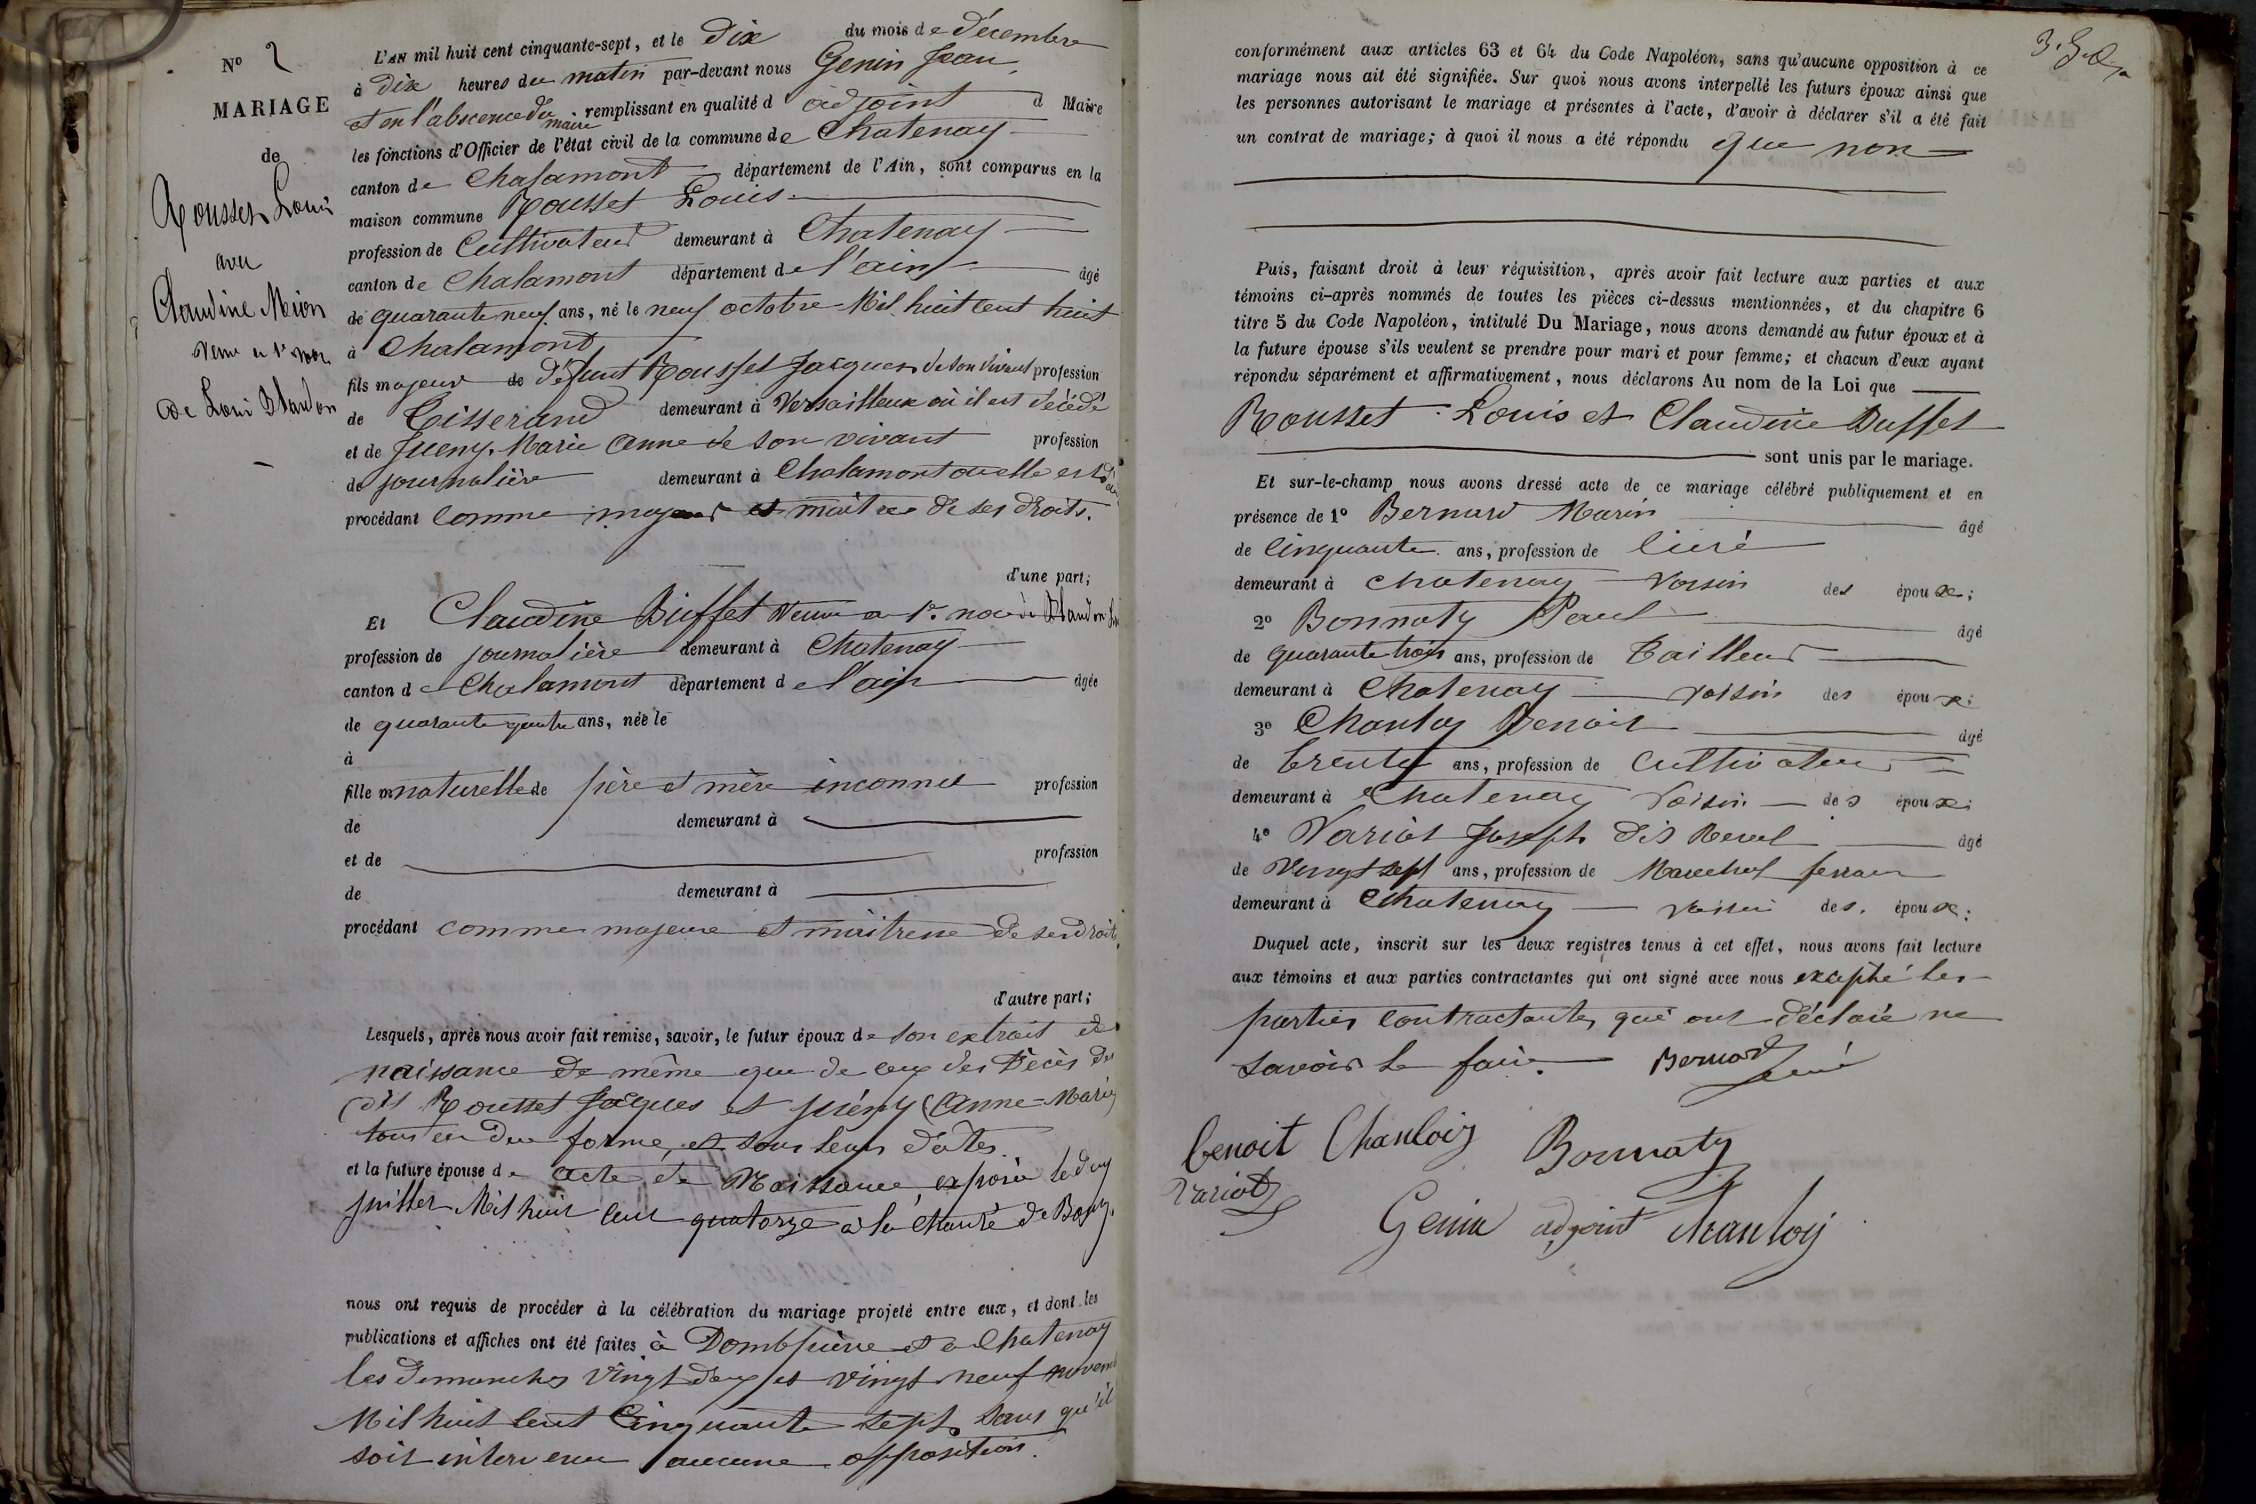 N° 2
MARIAGE
de
Rousset Louis
avec
Claudine Mion
veuve en 1re noce
de Louis Blandon
L'AN mil huit cent cinquante-sept, et le dix du mois de décembre
à dix heures du matin par-devant nous Genin Jean,
et en l'abscence du maire remplissant en qualité d adjoint d Maire
les fonctions d'Officier de l'état civil de la commune de Chatenay
canton de Chalamont département de l'Ain, sont comparus en la
maison commune Rousset Louis
profession de Cultivateur demeurant à Chatenay
canton de Chalamont département de l'ain âgé
de quarante neuf ans, né le neuf octobre Mil huit cent huit
à Chalamont
fils majeur de défunt Rousset Jacques de son vivant profession
de Tisserand demeurant à Versailleux où il est décédé
et de Jueny Marie Anne de son vivant profession
de journalière demeurant à Chalamont ou elle est
procédant comme majeur et maitre de ses droits.
d'une part;
Et Claudine Buffet veuve en 1re noce de Blandon
profession de journalière demeurant à Chatenay
canton de Chalamont département de l'ain âgée
de quarante quatre ans, née le
à
fille naturelle de père et mère inconnu profession
de demeurant à
et de profession
de demeurant à
procédant comme majeure et maitresse de ses droit
d'autre part;
Lesquels, après nous avoir fait remise, savoir, le futur époux de son extrait de
naissance de même que de ceux des Décès des
dits Rousset Jacques et Juény (Anne-Marie)
tous en due forme, et sous leurs dates.
et la future épouse de acte de Naissance, exposée le
juillet Mil huit cent quatorze à la charité de Bourg.
nous ont requis de procéder à la célébration du mariage projeté entre eux, et dont les
publications et affiches ont été faites à Dompierre et a Chatenay
les dimanches vingt deux et vingt neuf novem
Mil huit cent Cinquante sept, sans qu'il
soit intervenu aucune opposition.
conformément aux articles 63 et 64 du Code Napoléon, sans qu'aucune opposition à ce
mariage nous ait été signifiée. Sur quoi nous avons interpellé les futurs époux ainsi que
les personnes autorisant le mariage et présentes à l'acte, d'avoir à déclarer s'il a été fait
un contrat de mariage; à quoi il nous a été répondu que non
Puis, faisant droit à leur réquisition, après avoir fait lecture aux parties et aux
témoins ci-après nommés de toutes les pièces ci-dessus mentionnées, et du chapitre 6
titre 5 du Code Napoléon, intitulé Du Mariage, nous avons demandé au futur époux et à
la future épouse s'ils veulent se prendre pour mari et pour femme; et chacun d'eux ayant
répondu séparément et affirmativement, nous déclarons Au nom de la Loi que
Rousset Louis et Claudine Buffet
sont unis par le mariage.
Et sur-le-champ nous avons dressé acte de ce mariage célébré publiquement et en
présence de 1° Bernard Marin âgé
de Cinquante ans, profession de Curé
demeurant à Chatenay voisin des époux;
2° Bonnaty Paul âgé
de quarante trois ans, profession de Tailleur
demeurant à Chatenay voisin des époux;
3° Chanloy Benoit âgé
de trente ans, profession de Cultivateur
demeurant à Chatenay voisin des époux;
4° Variot Joseph dit Revel âgé
de Vingt sept ans, profession de Marechal ferran
demeurant à Chatenay voisin des époux;
Duquel acte, inscrit sur les deux registres tenus à cet effet, nous avons fait lecture
aux témoins et aux parties contractantes qui ont signé avec nous excepté les
parties contractantes qui ont déclaré ne
savoir le faire. Bernard
curé
benoit Chanloiy Bonnaty
Variot
Genin adjoint Chanloy